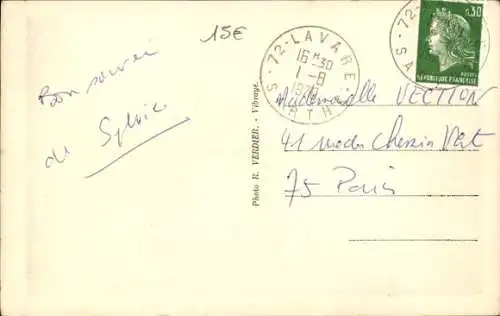 15€
Bon souvenir
de Sylvie
Photo R. VERDIER. - Vibraye.
72-LAVARE
16 H 30
1-8
SARTHE
0,30
RÉPUBLIQUE FRANÇAISE
Mademoiselle VECTION
41 rue du Chemin Vert
75 Paris